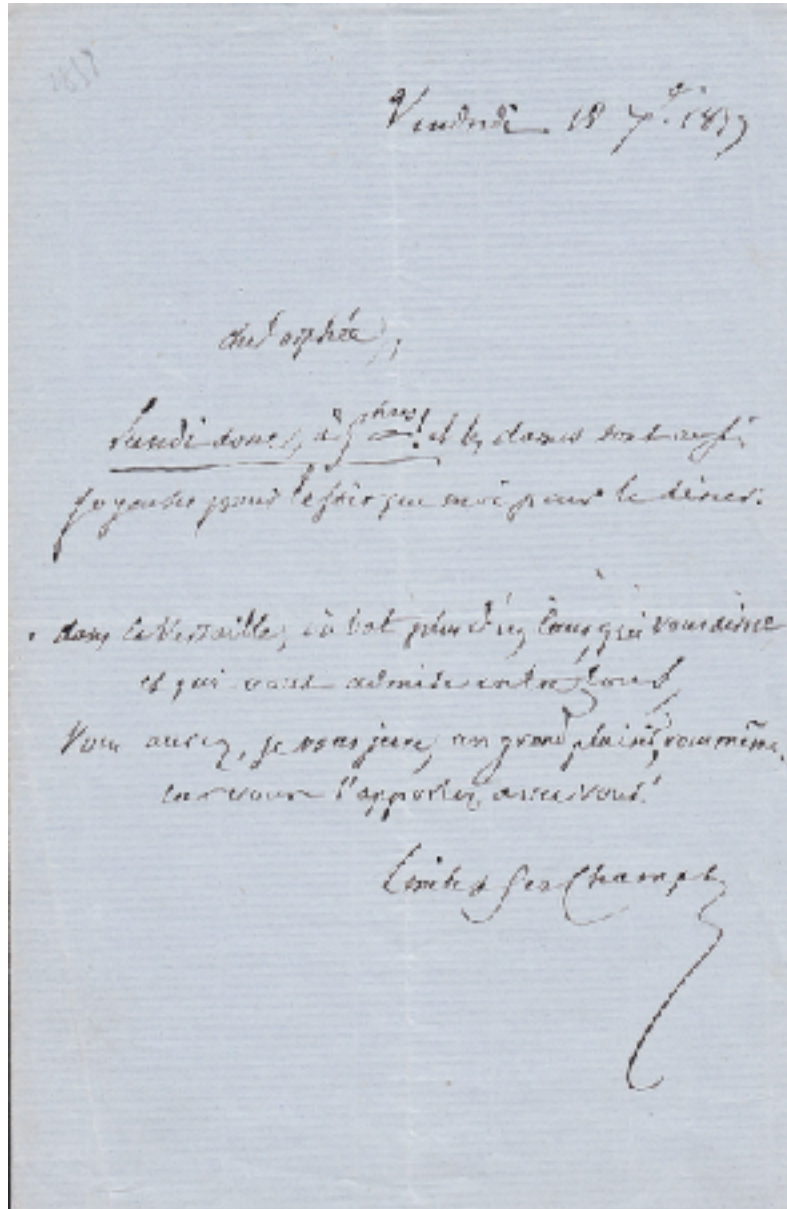 Vendredi 18 7bre 1857
cher
Lundi donc, à 5 hres! et les dames sont aussi
joyeuses pour le soir que moi pour le dîner.
dans ce Versailles, où bat plus d'un cœur qui vous aime
et qui vous admire entre tous
Vous aurez, je vous jure, un grand plaisir, vous même,
car vous l'apportez avec vous!
Emile DesChamps